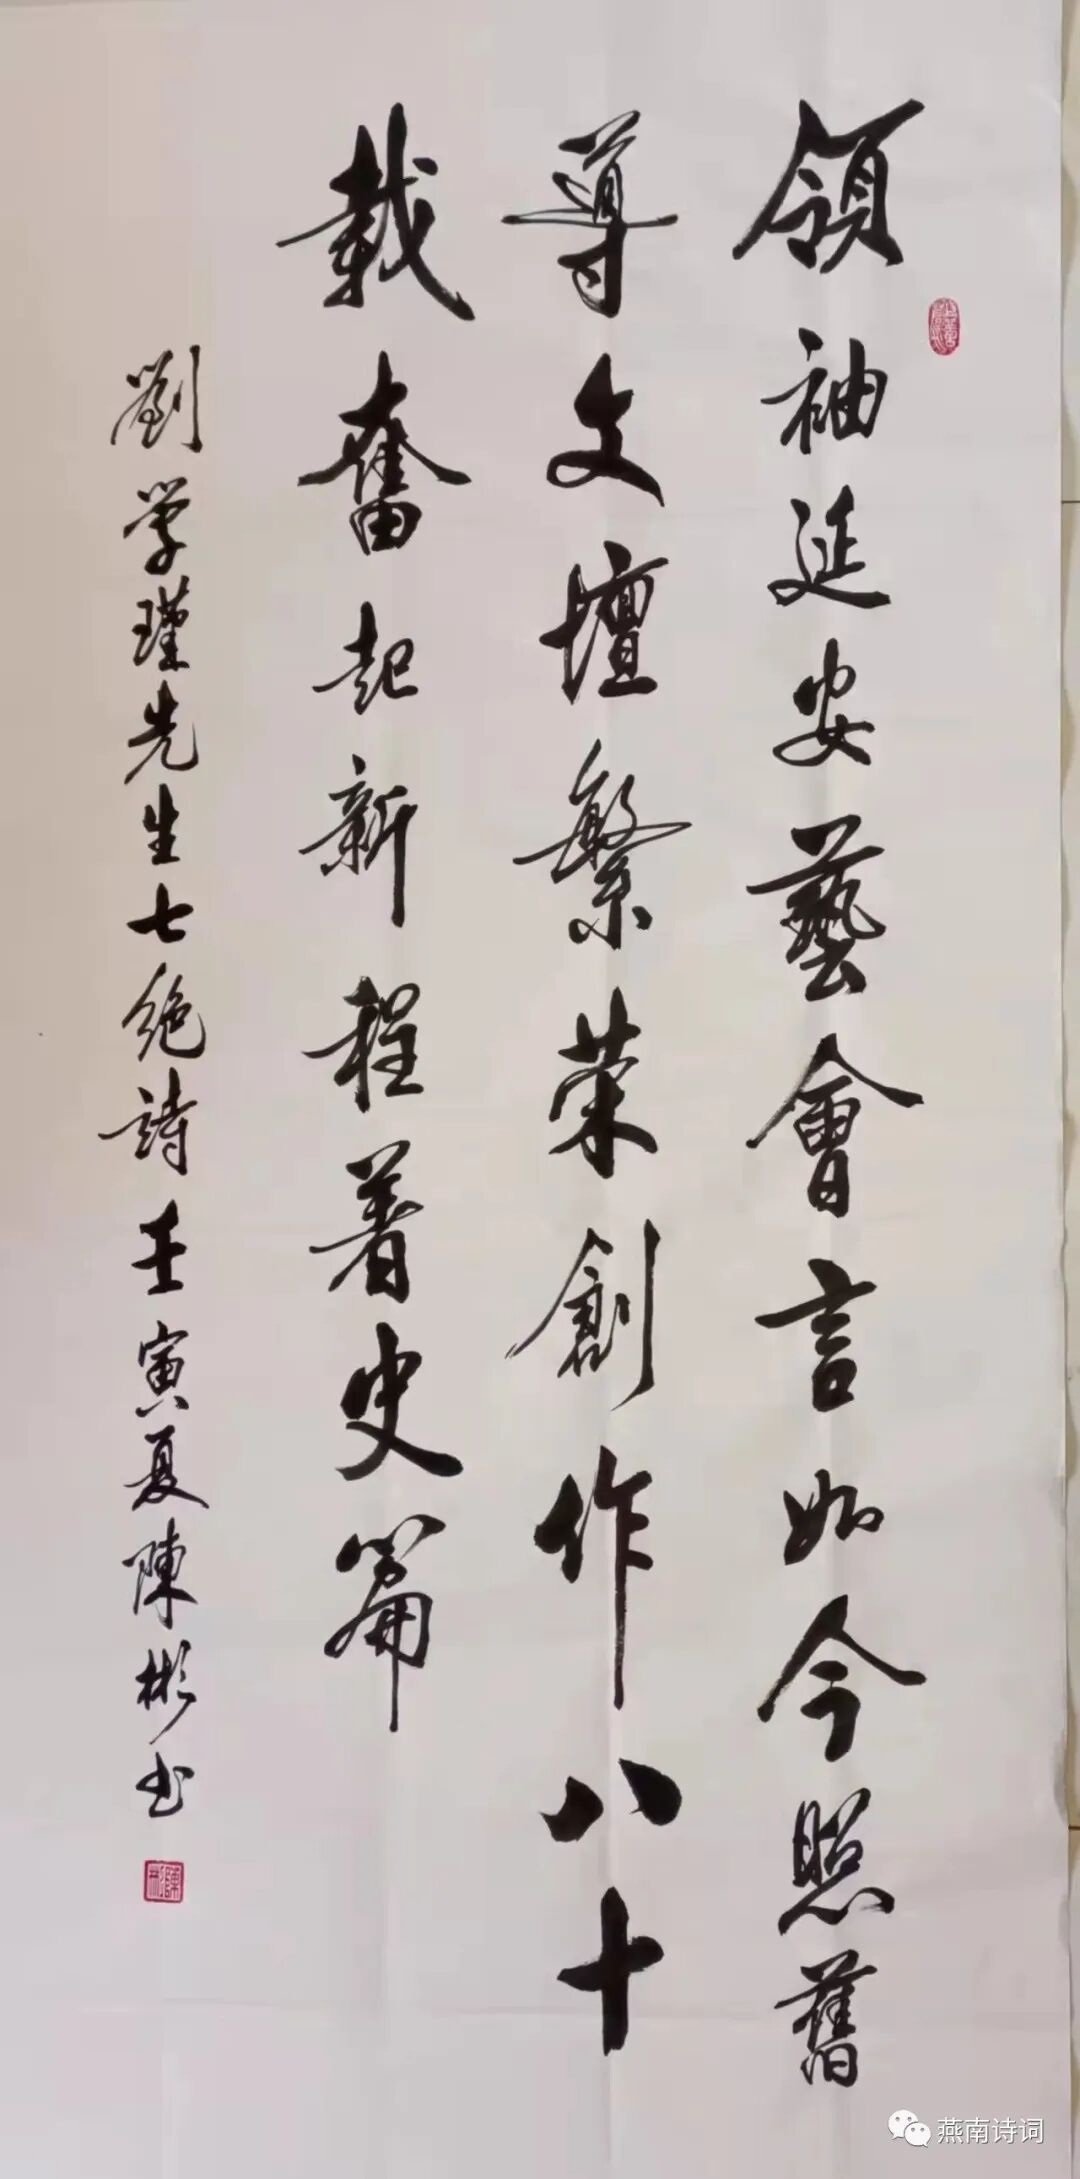 領袖延安藝會言如今照舊
導文壇繁荣創作八十
載奮起新程著史篇
劉学瑾先生七絶詩壬寅夏陳彬书
燕南诗词